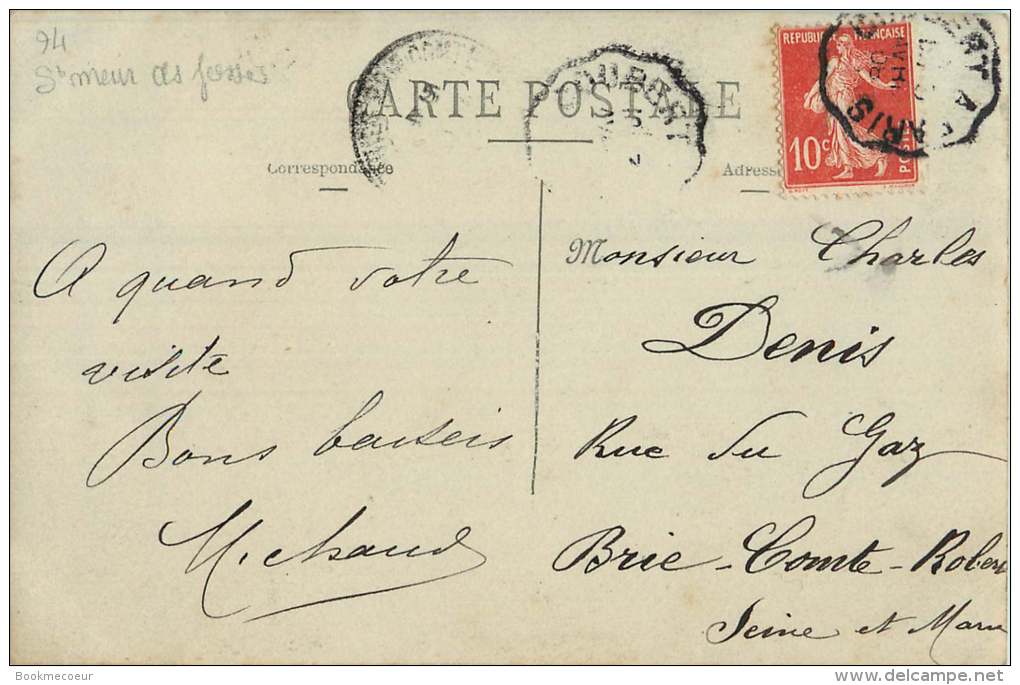 94
St meur des fosses
CARTE POSTALE
Correspondance
Adresse
REPUBLIQUE FRANÇAISE
10c
POSTES
A PARIS
A quand votre
visite
Bons baisers
Michaud
Monsieur Charles
Denis
Rue du Gaz
Brie-Comte-Robert
Seine et Marne
Bookmecoeur
www.delcampe.net